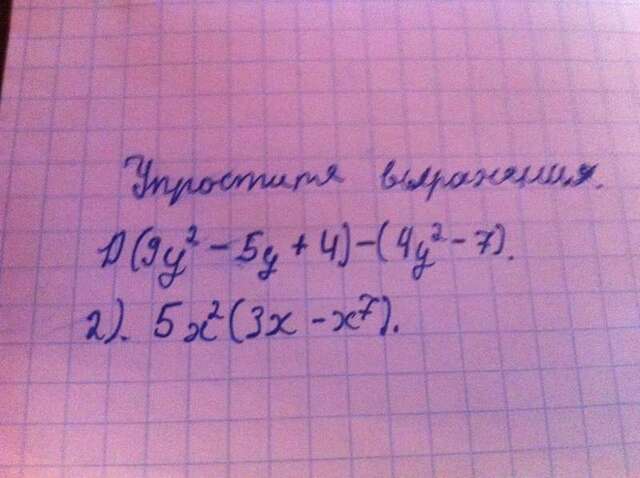 Упростите выражения.
1) (9y² - 5y + 4) - (4y² - 7).
2). 5x² (3x - x⁷).